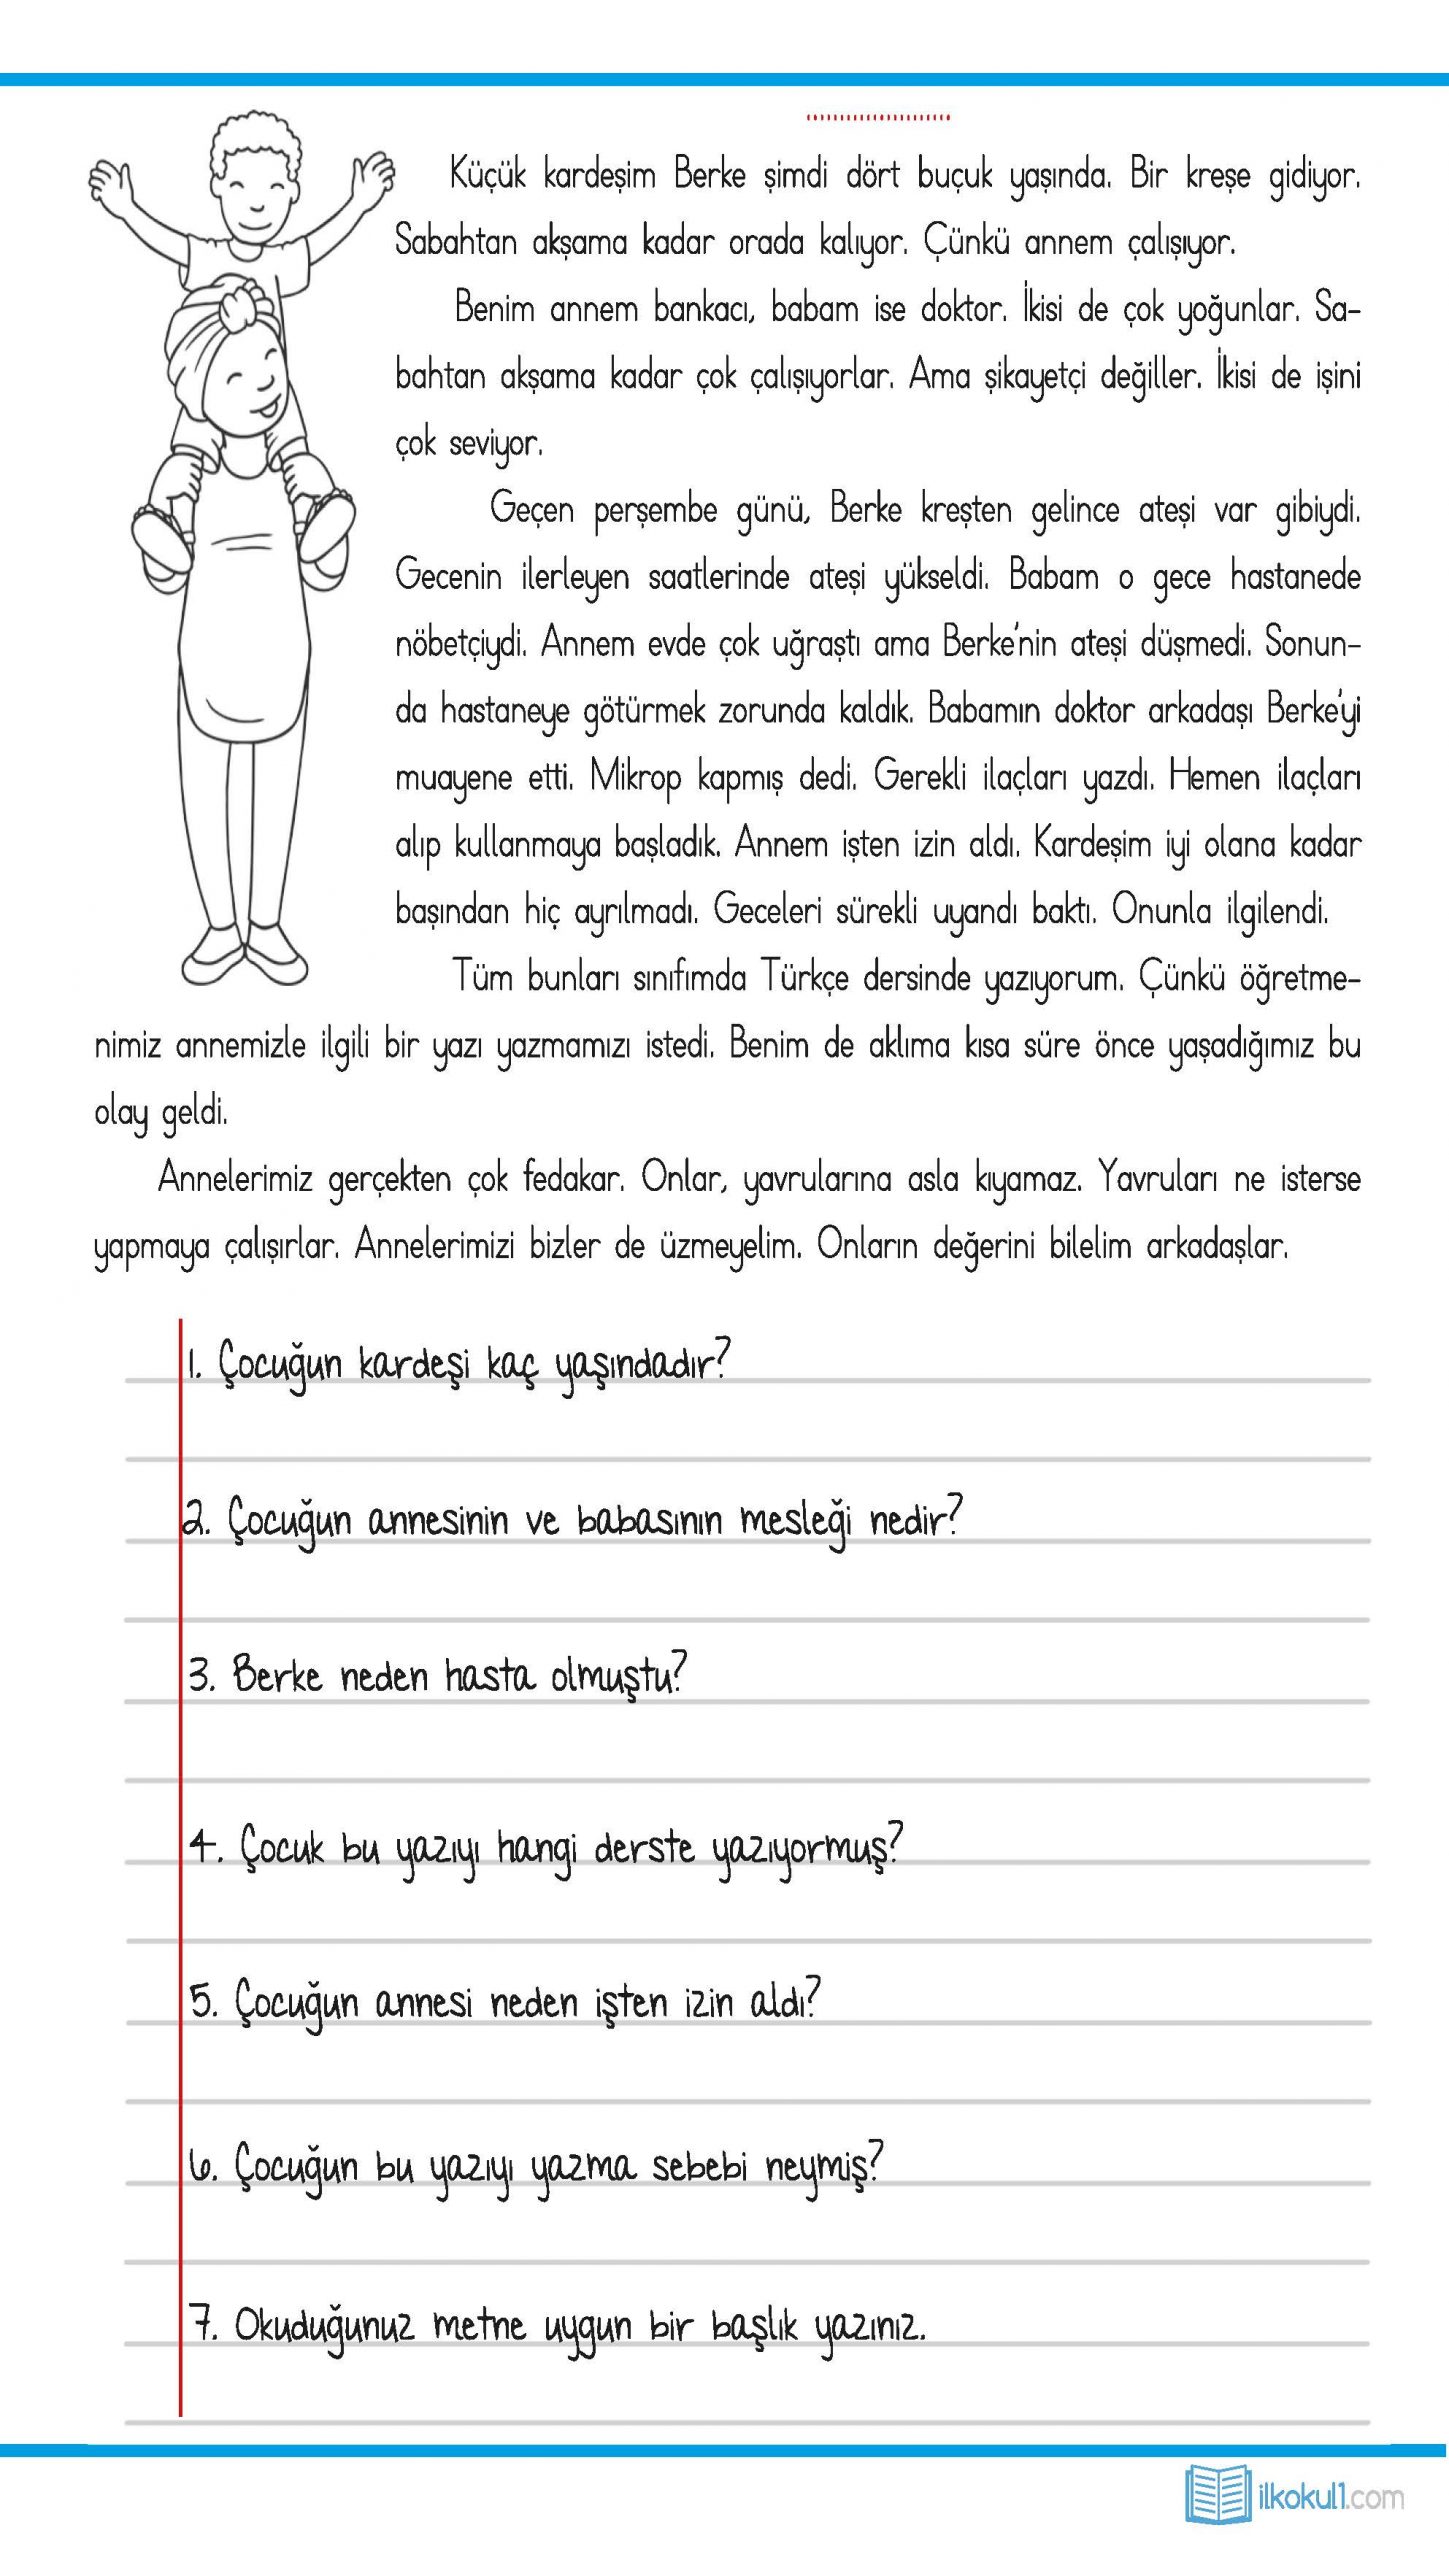 Küçük kardeşim Berke şimdi dört buçuk yaşında. Bir kreşe gidiyor.
Sabahtan akşama kadar orada kalıyor. Çünkü annem çalışıyor.
Benim annem bankacı, babam ise doktor. İkisi de çok yoğunlar. Sa-
bahtan akşama kadar çok çalışıyorlar. Ama şikayetçi değiller. İkisi de işini
çok seviyor.
Geçen perşembe günü, Berke kreşten gelince ateşi var gibiydi.
Gecenin ilerleyen saatlerinde ateşi yükseldi. Babam o gece hastanede
nöbetçiydi. Annem evde çok uğraştı ama Berke'nin ateşi düşmedi. Sonun-
da hastaneye götürmek zorunda kaldık. Babamın doktor arkadaşı Berke'yi
muayene etti. Mikrop kapmış dedi. Gerekli ilaçları yazdı. Hemen ilaçları
alıp kullanmaya başladık. Annem işten izin aldı. Kardeşim iyi olana kadar
başından hiç ayrılmadı. Geceleri sürekli uyandı baktı. Onunla ilgilendi.
Tüm bunları sınıfımda Türkçe dersinde yazıyorum. Çünkü öğretme-
nimiz annemizle ilgili bir yazı yazmamızı istedi. Benim de aklıma kısa süre önce yaşadığımız bu
olay geldi.
Annelerimiz gerçekten çok fedakar. Onlar, yavrularına asla kıyamaz. Yavruları ne isterse
yapmaya çalışırlar. Annelerimizi bizler de üzmeyelim. Onların değerini bilelim arkadaşlar.
1. Çocuğun kardeşi kaç yaşındadır?
2. Çocuğun annesinin ve babasının mesleği nedir?
3. Berke neden hasta olmuştu?
4. Çocuk bu yazıyı hangi derste yazıyormuş?
5. Çocuğun annesi neden işten izin aldı?
6. Çocuğun bu yazıyı yazma sebebi neymiş?
7. Okuduğunuz metne uygun bir başlık yazınız.
ilkokul1.com